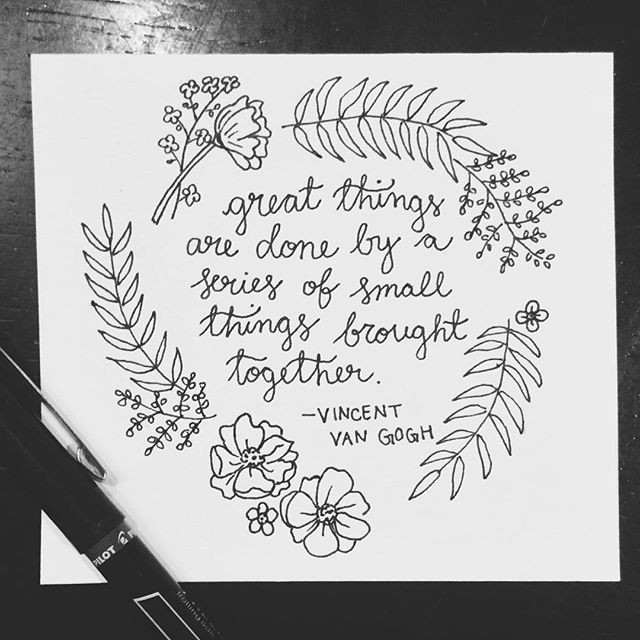 great things
are done by a
series of small
things brought
together.
-VINCENT
VAN GOGH
PILOT